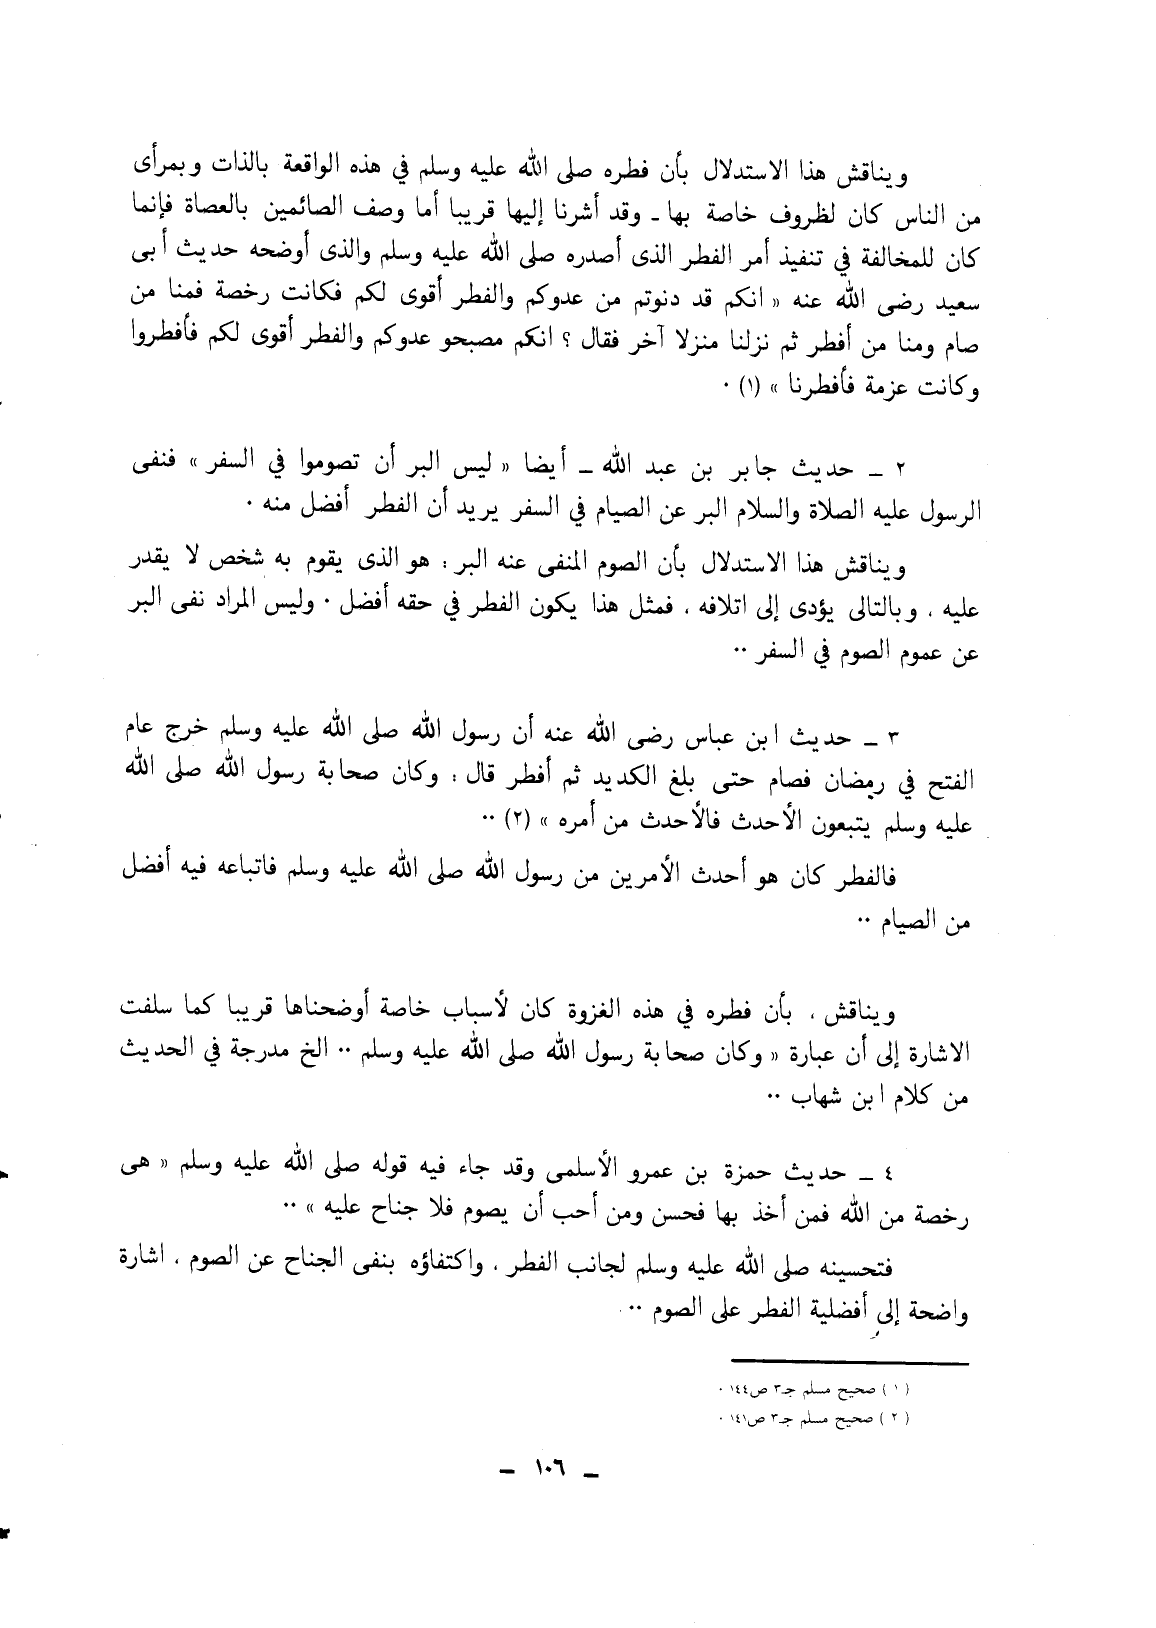 ويناقش هذا الاستدلال بأن فطره صلى الله عليه وسلم في هذه الواقعة بالذات وبمرأى
من الناس كان لظروف خاصة بها ـ وقد أشرنا إليها قريبا أما وصف الصائمين بالعصاة فإنما
كان للمخالفة في تنفيذ أمر الفطر الذى أصدره صلى الله عليه وسلم والذى أوضحه حديث أبى
سعيد رضى الله عنه « انكم قد دنوتم من عدوكم والفطر أقوى لكم فكانت رخصة فمنا من
صام ومنا من أفطر ثم نزلنا منزلا آخر فقال ؟ انكم مصبحو عدوكم والفطر أقوى لكم فأفطروا
وكانت عزمة فأفطرنا » (١) ٠
٢ ـ حديث جابر بن عبد الله ـ أيضا « ليس البر أن تصوموا في السفر » فنفى
الرسول عليه الصلاة والسلام البر عن الصيام في السفر يريد أن الفطر أفضل منه ٠
ويناقش هذا الاستدلال بأن الصوم المنفى عنه البر : هو الذى يقوم به شخص لا يقدر
عليه ، وبالتالى يؤدى إلى اتلافه ، فمثل هذا يكون الفطر في حقه أفضل ٠ وليس المراد نفى البر
عن عموم الصوم في السفر ٠٠
٣ ـ حديث ابن عباس رضى الله عنه أن رسول الله صلى الله عليه وسلم خرج عام
الفتح في رمضان فصام حتى بلغ الكديد ثم أفطر قال : وكان صحابة رسول الله صلى الله
عليه وسلم يتبعون الأحدث فالأحدث من أمره » (٢) ٠٠
فالفطر كان هو أحدث الأمرين من رسول الله صلى الله عليه وسلم فاتباعه فيه أفضل
من الصيام ٠٠
ويناقش ، بأن فطره في هذه الغزوة كان لأسباب خاصة أوضحناها قريبا كما سلفت
الاشارة إلى أن عبارة « وكان صحابة رسول الله صلى الله عليه وسلم ٠٠ الخ مدرجة في الحديث
من كلام ابن شهاب ٠٠
٤ ـ حديث حمزة بن عمرو الأسلمى وقد جاء فيه قوله صلى الله عليه وسلم « هى
رخصة من الله فمن أخذ بها فحسن ومن أحب أن يصوم فلا جناح عليه » ٠٠
فتحسينه صلى الله عليه وسلم لجانب الفطر ، واكتفاؤه بنفى الجناح عن الصوم ، اشارة
واضحة إلى أفضلية الفطر على الصوم ٠٠
( ١ ) صحيح مسلم جـ٣ ص١٤٤ ٠
( ٢ ) صحيح مسلم جـ٣ ص١٤١ ٠
ـ ١٠٦ ـ